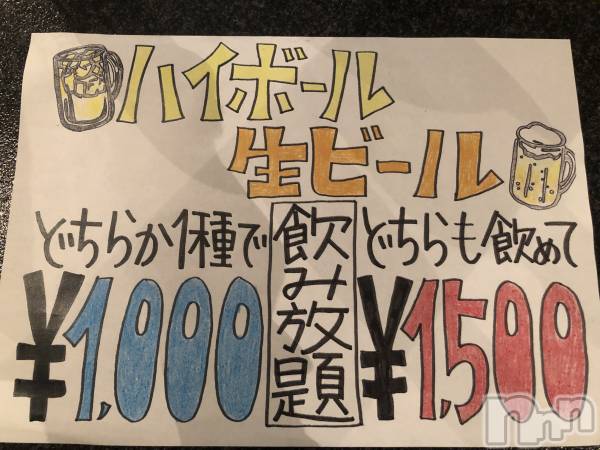 ハイボール
生ビール
どちらか1種で
¥1,000
飲み放題
どちらも飲めて
¥1,500